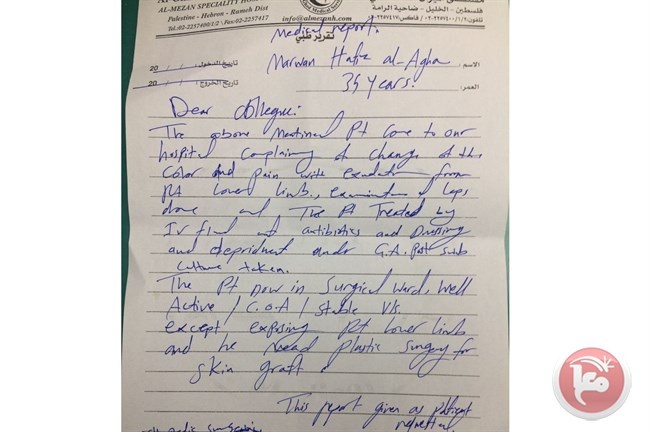 AL-MEZAN SPECIALITY HOS
Palestine - Hebron - Rameh Dist
Tel:02-2257400/1/2 Fax:02-2257417
info@almezanh.com
فلسطين - الخليل - ضاحية الرامة
تقرير طبي
Medical report.
الاسم: Marwan Hafiz al-Agha
تاريخ الدخول: 20
العمر: 34 years.
تاريخ الخروج: 20
Dear Collegue:
The above Mentined Pt Come to our
hospital Complaining of change of the
Color and pain with exudation from
Rt Lower limb, examination & Laps
done and The Pt Treated by
IV fluid and antibiotics and Dressing
and depridment under G.A. Post
Culture taken.
The Pt now in Surgical ward, Well
Active / C.O.A / Stable V/s.
except exposing Rt Lower limb
and he need plastic surgery for
skin graft.
This report given as patient